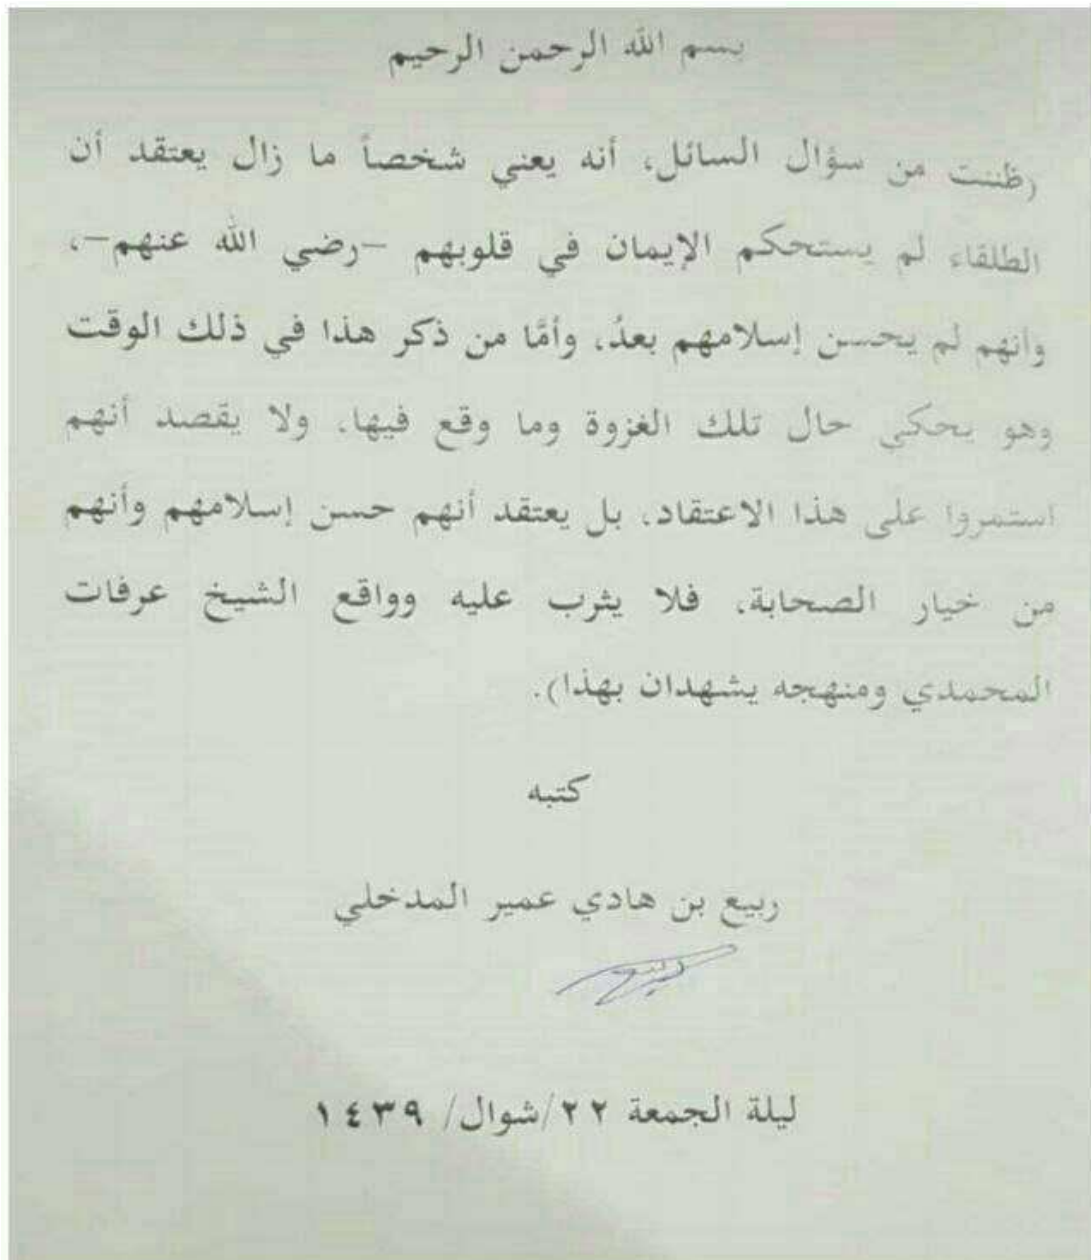 بسم الله الرحمن الرحيم
(ظننت من سؤال السائل، أنه يعني شخصاً ما زال يعتقد أن
الطلقاء لم يستحكم الإيمان في قلوبهم -رضي الله عنهم-،
وأنهم لم يحسن إسلامهم بعدُ، وأمَّا من ذكر هذا في ذلك الوقت
وهو يحكي حال تلك الغزوة وما وقع فيها، ولا يقصد أنهم
استمروا على هذا الاعتقاد، بل يعتقد أنهم حسن إسلامهم وأنهم
من خيار الصحابة، فلا يثرب عليه وواقع الشيخ عرفات
المحمدي ومنهجه يشهدان بهذا).
كتبه
ربيع بن هادي عمير المدخلي
ربيع
ليلة الجمعة ٢٢/شوال/ ١٤٣٩